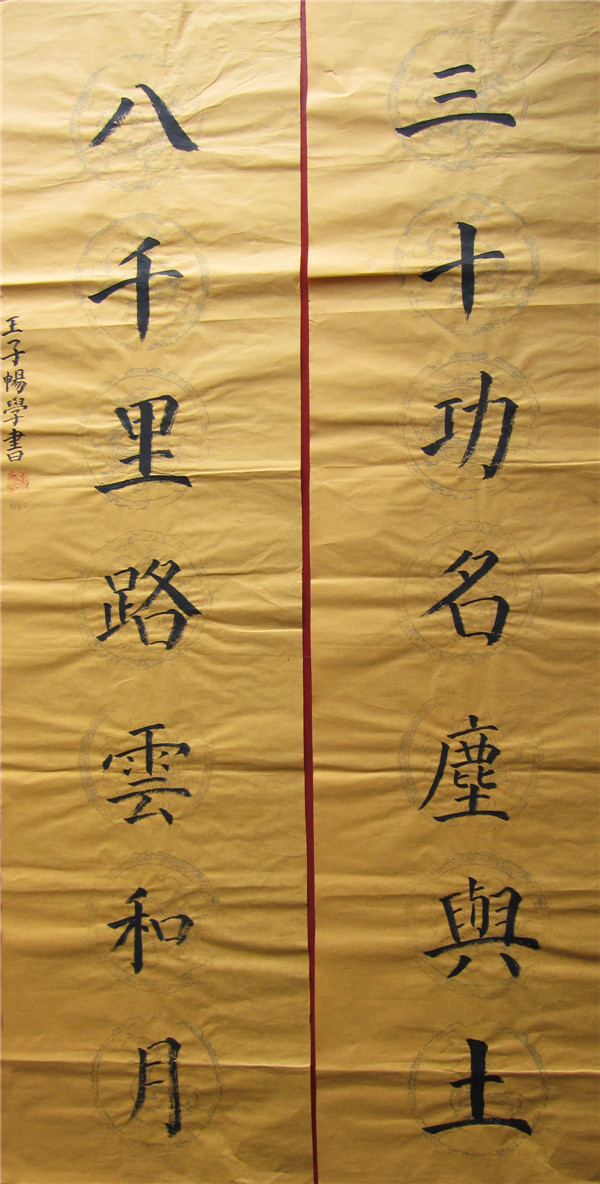 三十功名塵與土
八千里路雲和月
王子暢學書